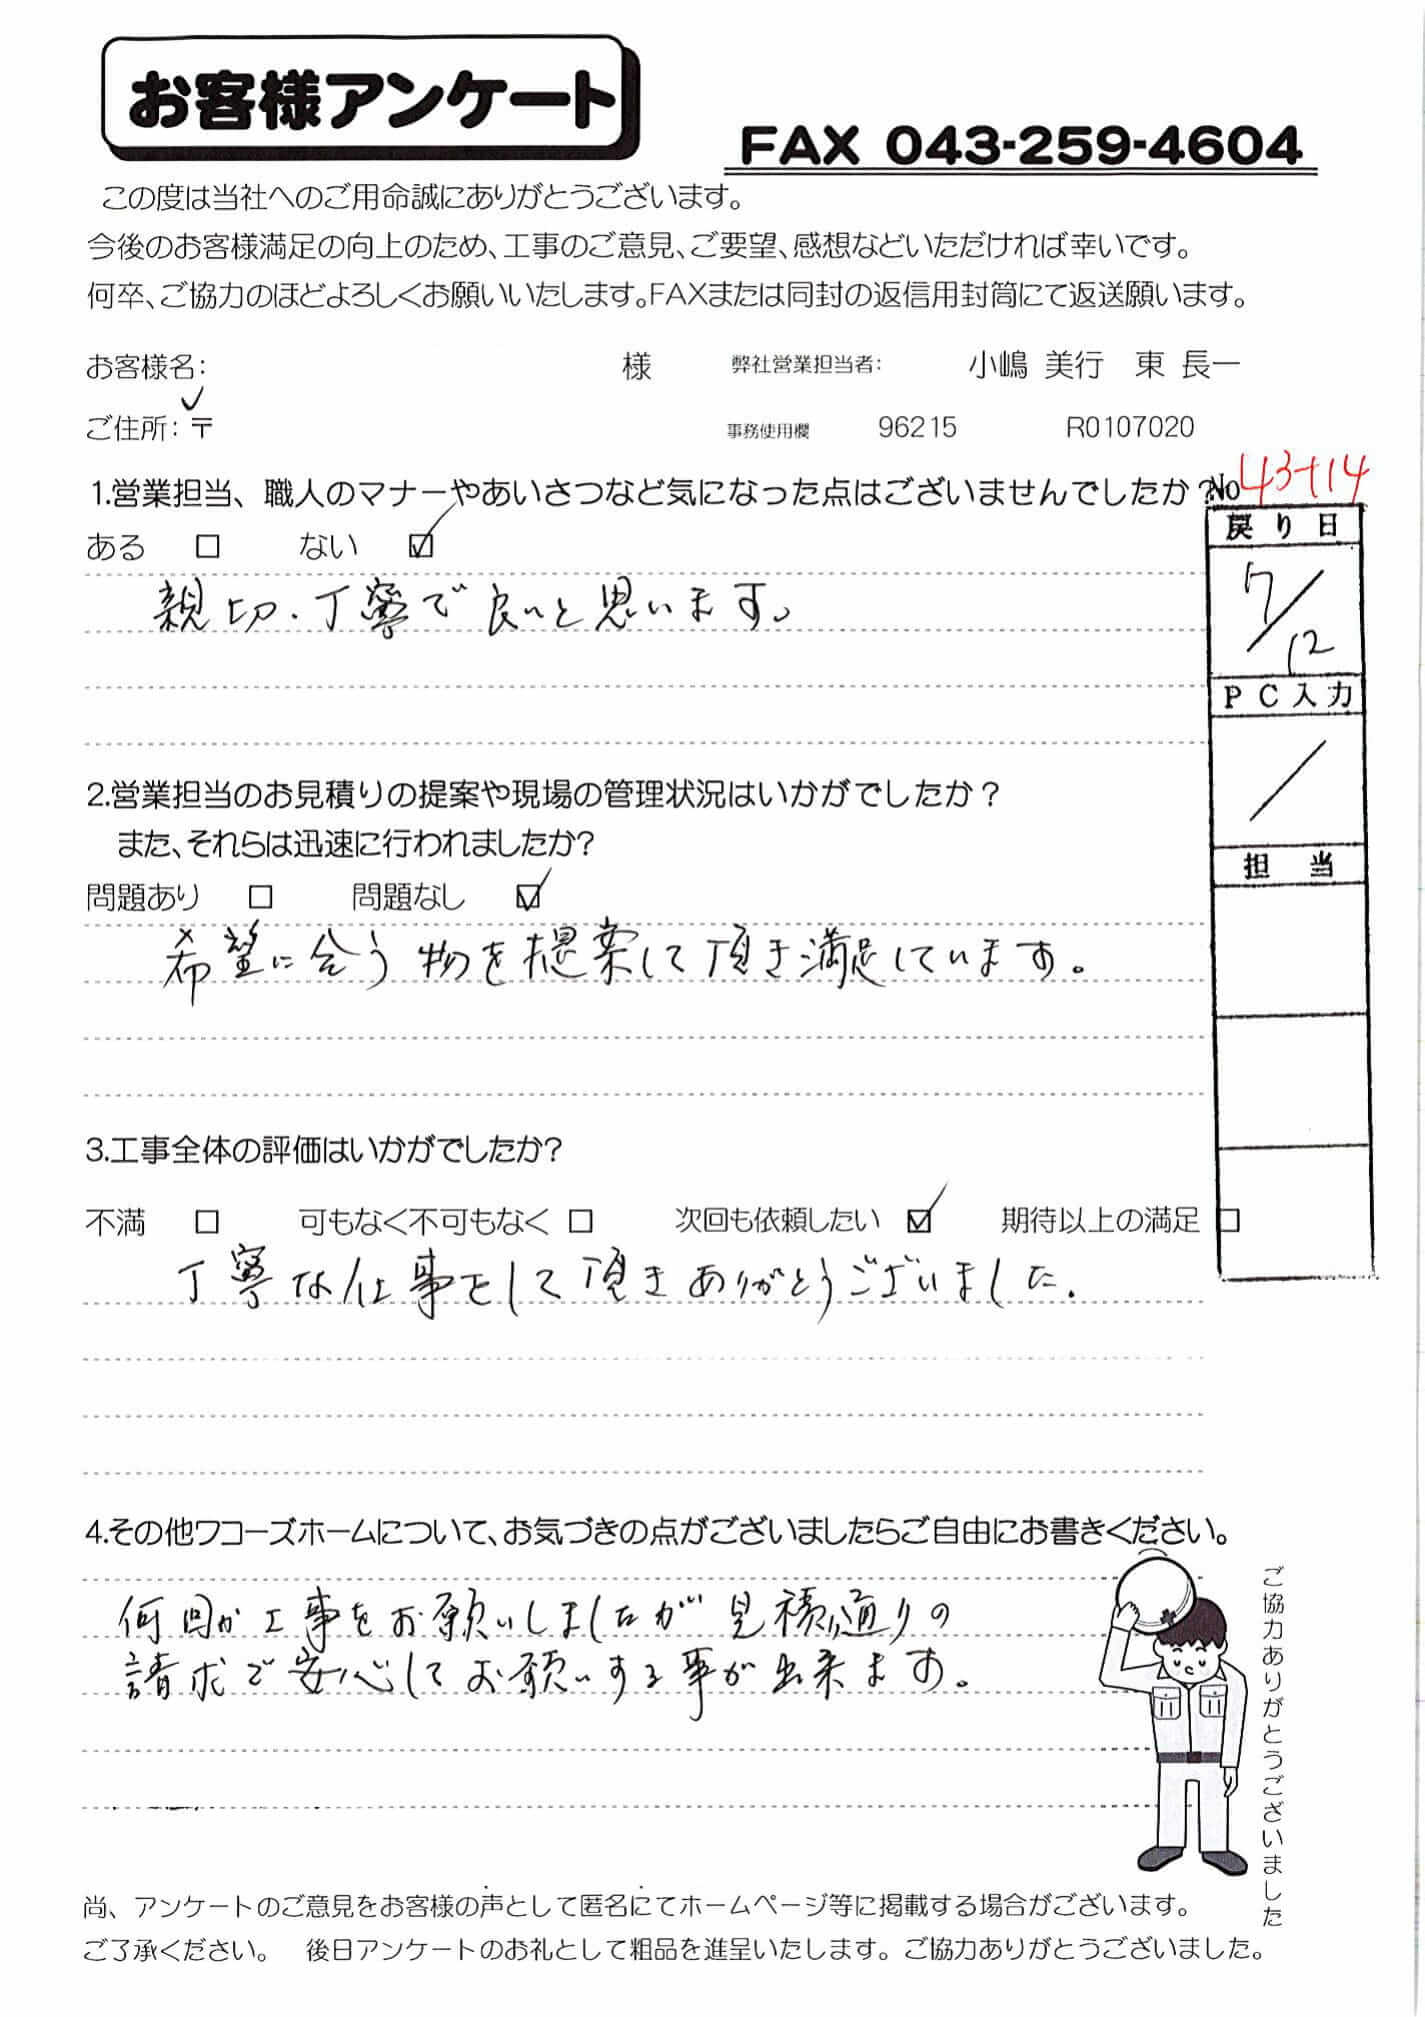 お客様アンケート
FAX 043-259-4604
この度は当社へのご用命誠にありがとうございます。
今後のお客様満足の向上のため、工事のご意見、ご要望、感想などいただければ幸いです。
何卒、ご協力のほどよろしくお願いいたします。FAXまたは同封の返信用封筒にて返送願います。
お客様名: 様 弊社営業担当者: 小嶋 美行 東 長一
ご住所:〒 事務使用欄 96215 R0107020
1.営業担当、職人のマナーやあいさつなど気になった点はございませんでしたか?
No
ある □ ない ☑
親切・丁寧で良いと思います。
戻り日
7/12
PC入力
/
担当
2.営業担当のお見積りの提案や現場の管理状況はいかがでしたか?
また、それらは迅速に行われましたか?
問題あり □ 問題なし ☑
希望に合う物を提案して頂き満足しています。
3.工事全体の評価はいかがでしたか?
不満 □ 可もなく不可もなく □ 次回も依頼したい ☑ 期待以上の満足 □
丁寧な仕事をして頂きありがとうございました.
4.その他ワコーズホームについて、お気づきの点がございましたらご自由にお書きください。
何回か工事をお願いしましたが見積通りの
請求で安心してお願いする事が出来ます。
ご協力ありがとうございました
尚、アンケートのご意見をお客様の声として匿名にてホームページ等に掲載する場合がございます。
ご了承ください。 後日アンケートのお礼として粗品を進呈いたします。ご協力ありがとうございました。